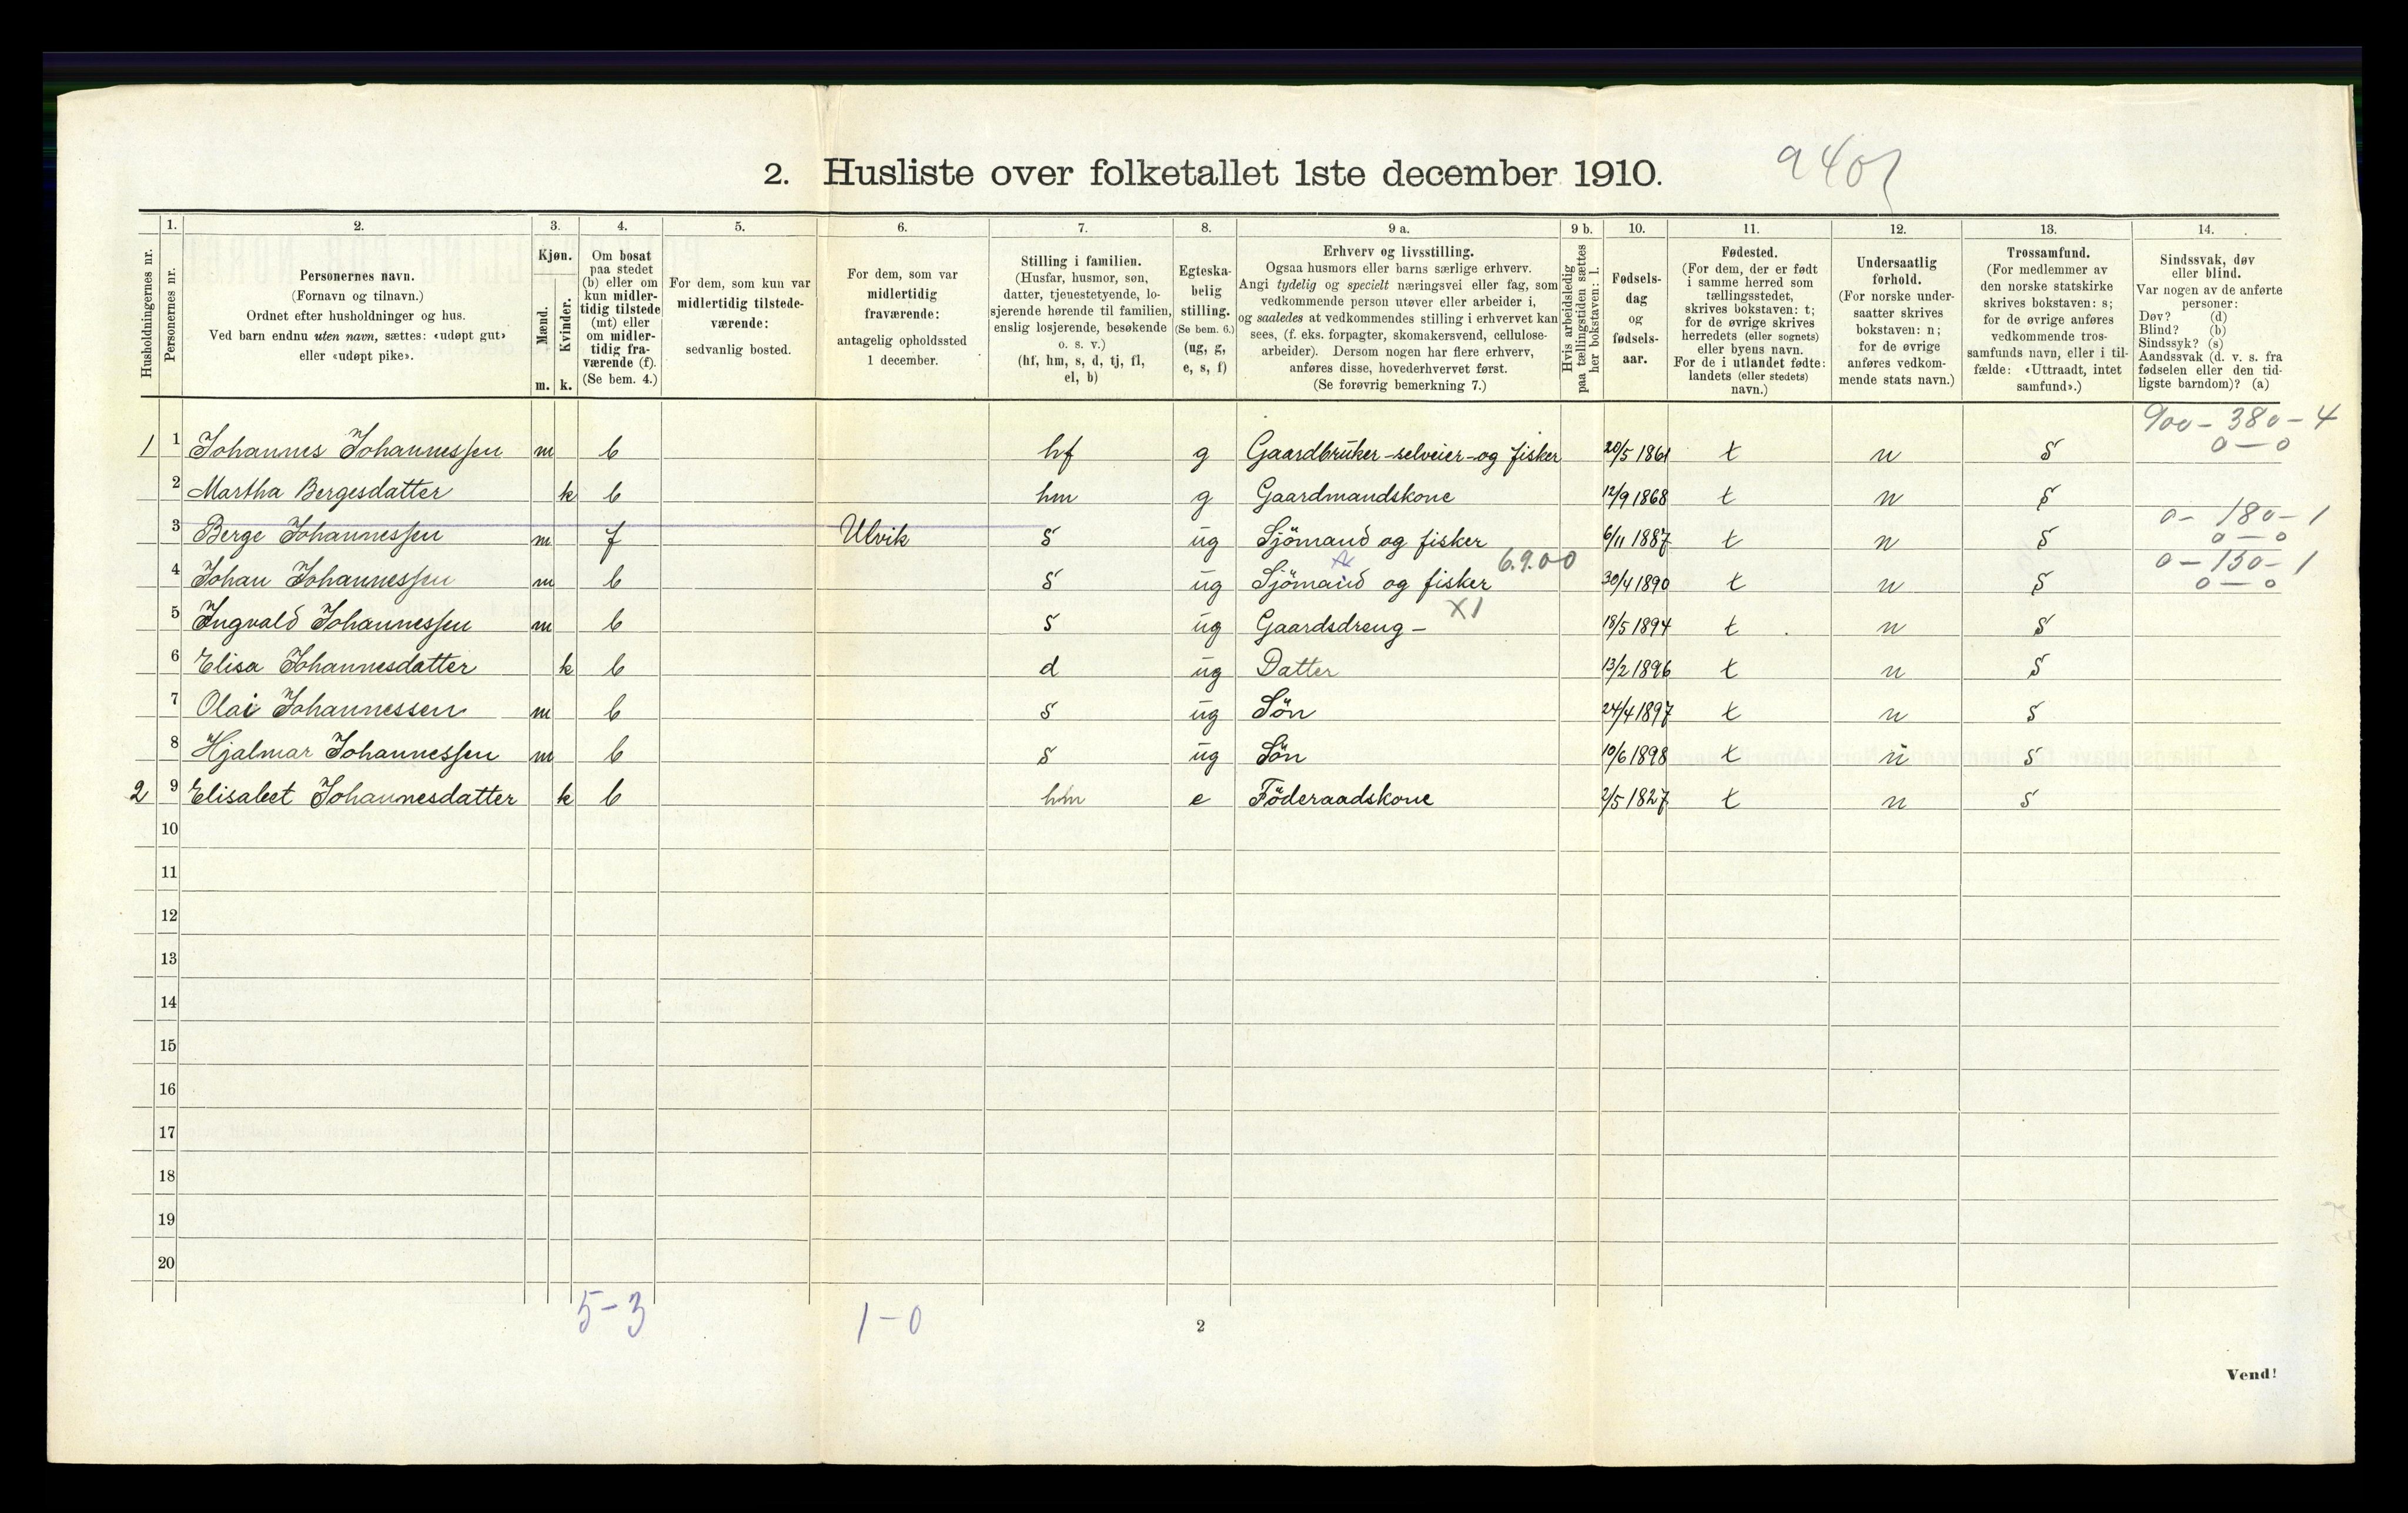 2. Husliste over folketallet 1ste december 1910.
9401
Husholdningernes nr.
1.
Personernes nr.
2.
Personernes navn.
(Fornavn og tilnavn.)
Ordnet efter husholdninger og hus.
Ved barn endnu uten navn, sættes: «udøpt gut»
eller «udøpt pike».
3.
Kjøn.
Mænd.
Kvinder.
m. k.
4.
Om bosat
paa stedet
(b) eller om
kun midler-
tidig tilstede
(mt) eller
om midler-
tidig fra-
værende (f).
(Se bem. 4.)
5.
For dem, som kun var
midlertidig tilstede-
værende:
sedvanlig bosted.
6.
For dem, som var
midlertidig
fraværende:
antagelig opholdssted
1 december.
7.
Stilling i familien.
(Husfar, husmor, søn,
datter, tjenestetyende, lo-
sjerende hørende til familien,
enslig losjerende, besøkende
o. s. v.)
(hf, hm, s, d, tj, fl,
el, b)
8.
Egteska-
belig
stilling.
(Se bem. 6.)
(ug, g,
e, s, f)
9 a.
Erhverv og livsstilling.
Ogsaa husmors eller barns særlige erhverv.
Angi tydelig og specielt næringsvei eller fag, som
vedkommende person utøver eller arbeider i,
og saaledes at vedkommendes stilling i erhvervet kan
sees, (f. eks. forpagter, skomakersvend, cellulose-
arbeider). Dersom nogen har flere erhverv,
anføres disse, hovederhvervet først.
(Se forøvrig bemerkning 7.)
9 b.
Hvis arbeidsledig
paa tællingstiden sættes
her bokstaven: l.
10.
Fødsels-
dag
og
fødsels-
aar.
11.
Fødested.
(For dem, der er født
i samme herred som
tællingsstedet,
skrives bokstaven: t;
for de øvrige skrives
herredets (eller sognets)
eller byens navn.
For de i utlandet fødte:
landets (eller stedets)
navn.)
12.
Undersaatlig
forhold.
(For norske under-
saatter skrives
bokstaven: n;
for de øvrige
anføres vedkom-
mende stats navn.)
13.
Trossamfund.
(For medlemmer av
den norske statskirke
skrives bokstaven: s;
for de øvrige anføres
vedkommende tros-
samfunds navn, eller i til-
fælde: «Uttraadt, intet
samfund».)
14.
Sindssvak, døv
eller blind.
Var nogen av de anførte
personer:
Døv? (d)
Blind? (b)
Sindssyk? (s)
Aandssvak (d. v. s. fra
fødselen eller den tid-
ligste barndom)? (a)
900 – 380 – 4
1 1 Johannes Johannessen m b hf g Gaardbruker – selveier – og fisker 20/5 1861 t n s 0 – 0
2 Martha Bergesdatter k b hm g Gaardmandskone 12/9 1868 t n s
0 – 180 – 1
3 Berge Johannessen m f Ulvik s ug Sjömand og fisker 6/11 1887 t n s 0 – 0
6.9.00
0 – 130 – 1
4 Johan Johannessen m b s ug Sjömand og fisker 30/4 1890 t n s 0 – 0
X1
5 Ingvald Johannessen m b s ug Gaardsdreng – 18/5 1894 t n s
6 Elisa Johannesdatter k b d ug Datter 13/2 1896 t n s
7 Olai Johannessen m b s ug Sön 24/4 1897 t n s
8 Hjalmar Johannessen m b s ug Sön 10/6 1898 t n s
2 9 Elisabet Johannesdatter k b hm e Föderaadskone 2/5 1827 t n s
10
11
12
13
14
15
16
17
18
19
20
5 – 3
1 – 0
2
Vend!